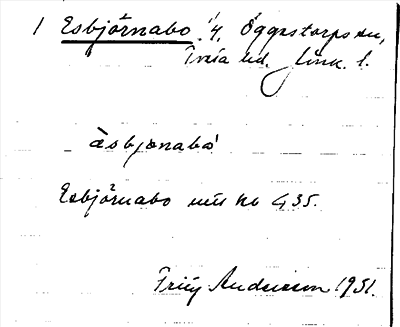 1 Esbjörnabo ¼, Öggestorps sn,
Tveta hd. Jönk. l.
àsbjɷnabo'
Esbjörnabo nu no 435.
Fritz Andersson 1951.